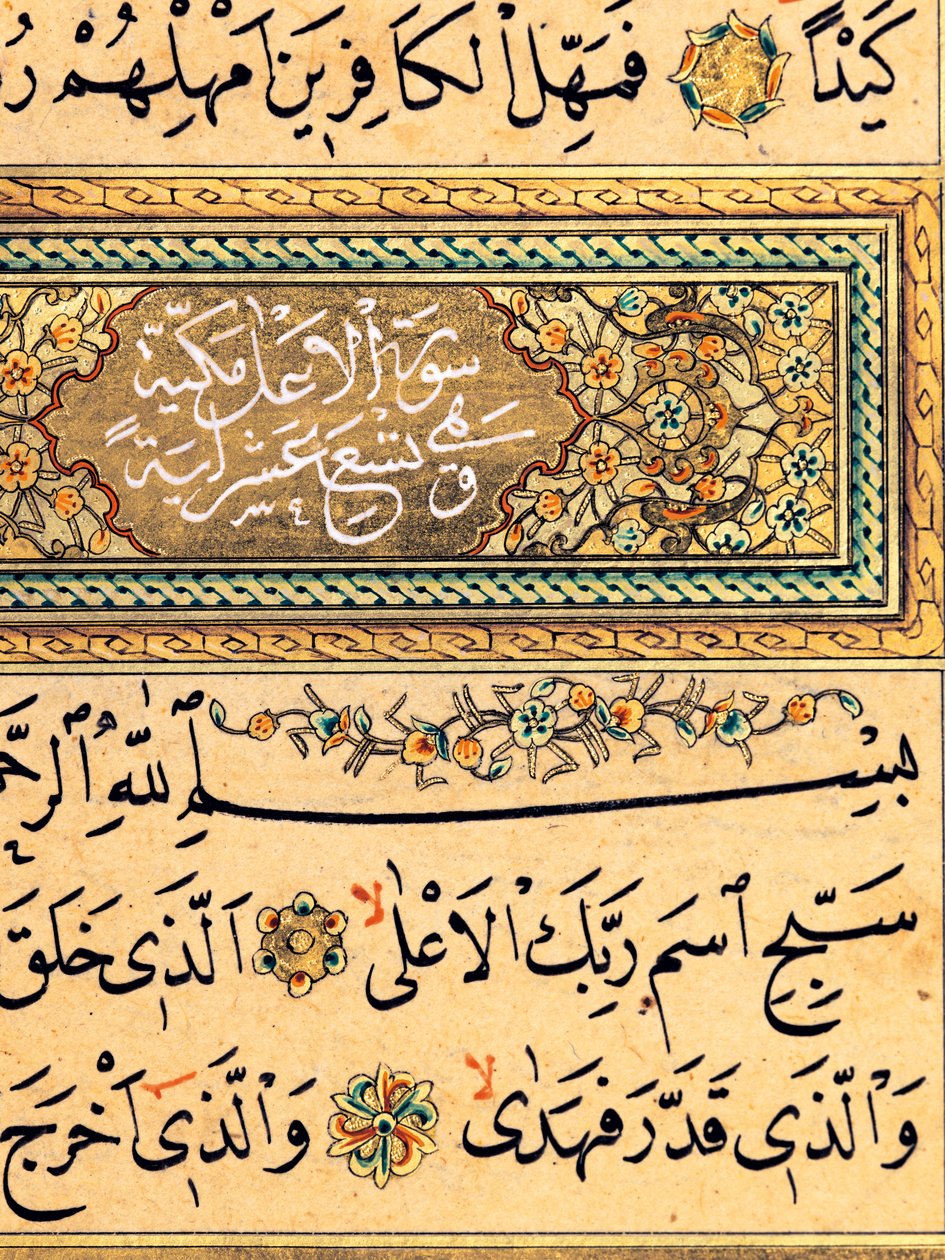 كَيْدًا فَمَهِّلِ الْكَافِرِينَ اَمْهِلْهُمْ
سورة الاعلى مكية
وهي تسع عشر اية
بِسْمِ اللّٰهِ الرَّ
سَبِّحِ اسْمَ رَبِّكَ الْاَعْلٰى لا اَلَّذِى خَلَقَ
وَالَّذِى قَدَّرَ فَهَدٰى لا وَالَّذِى اَخْرَجَ